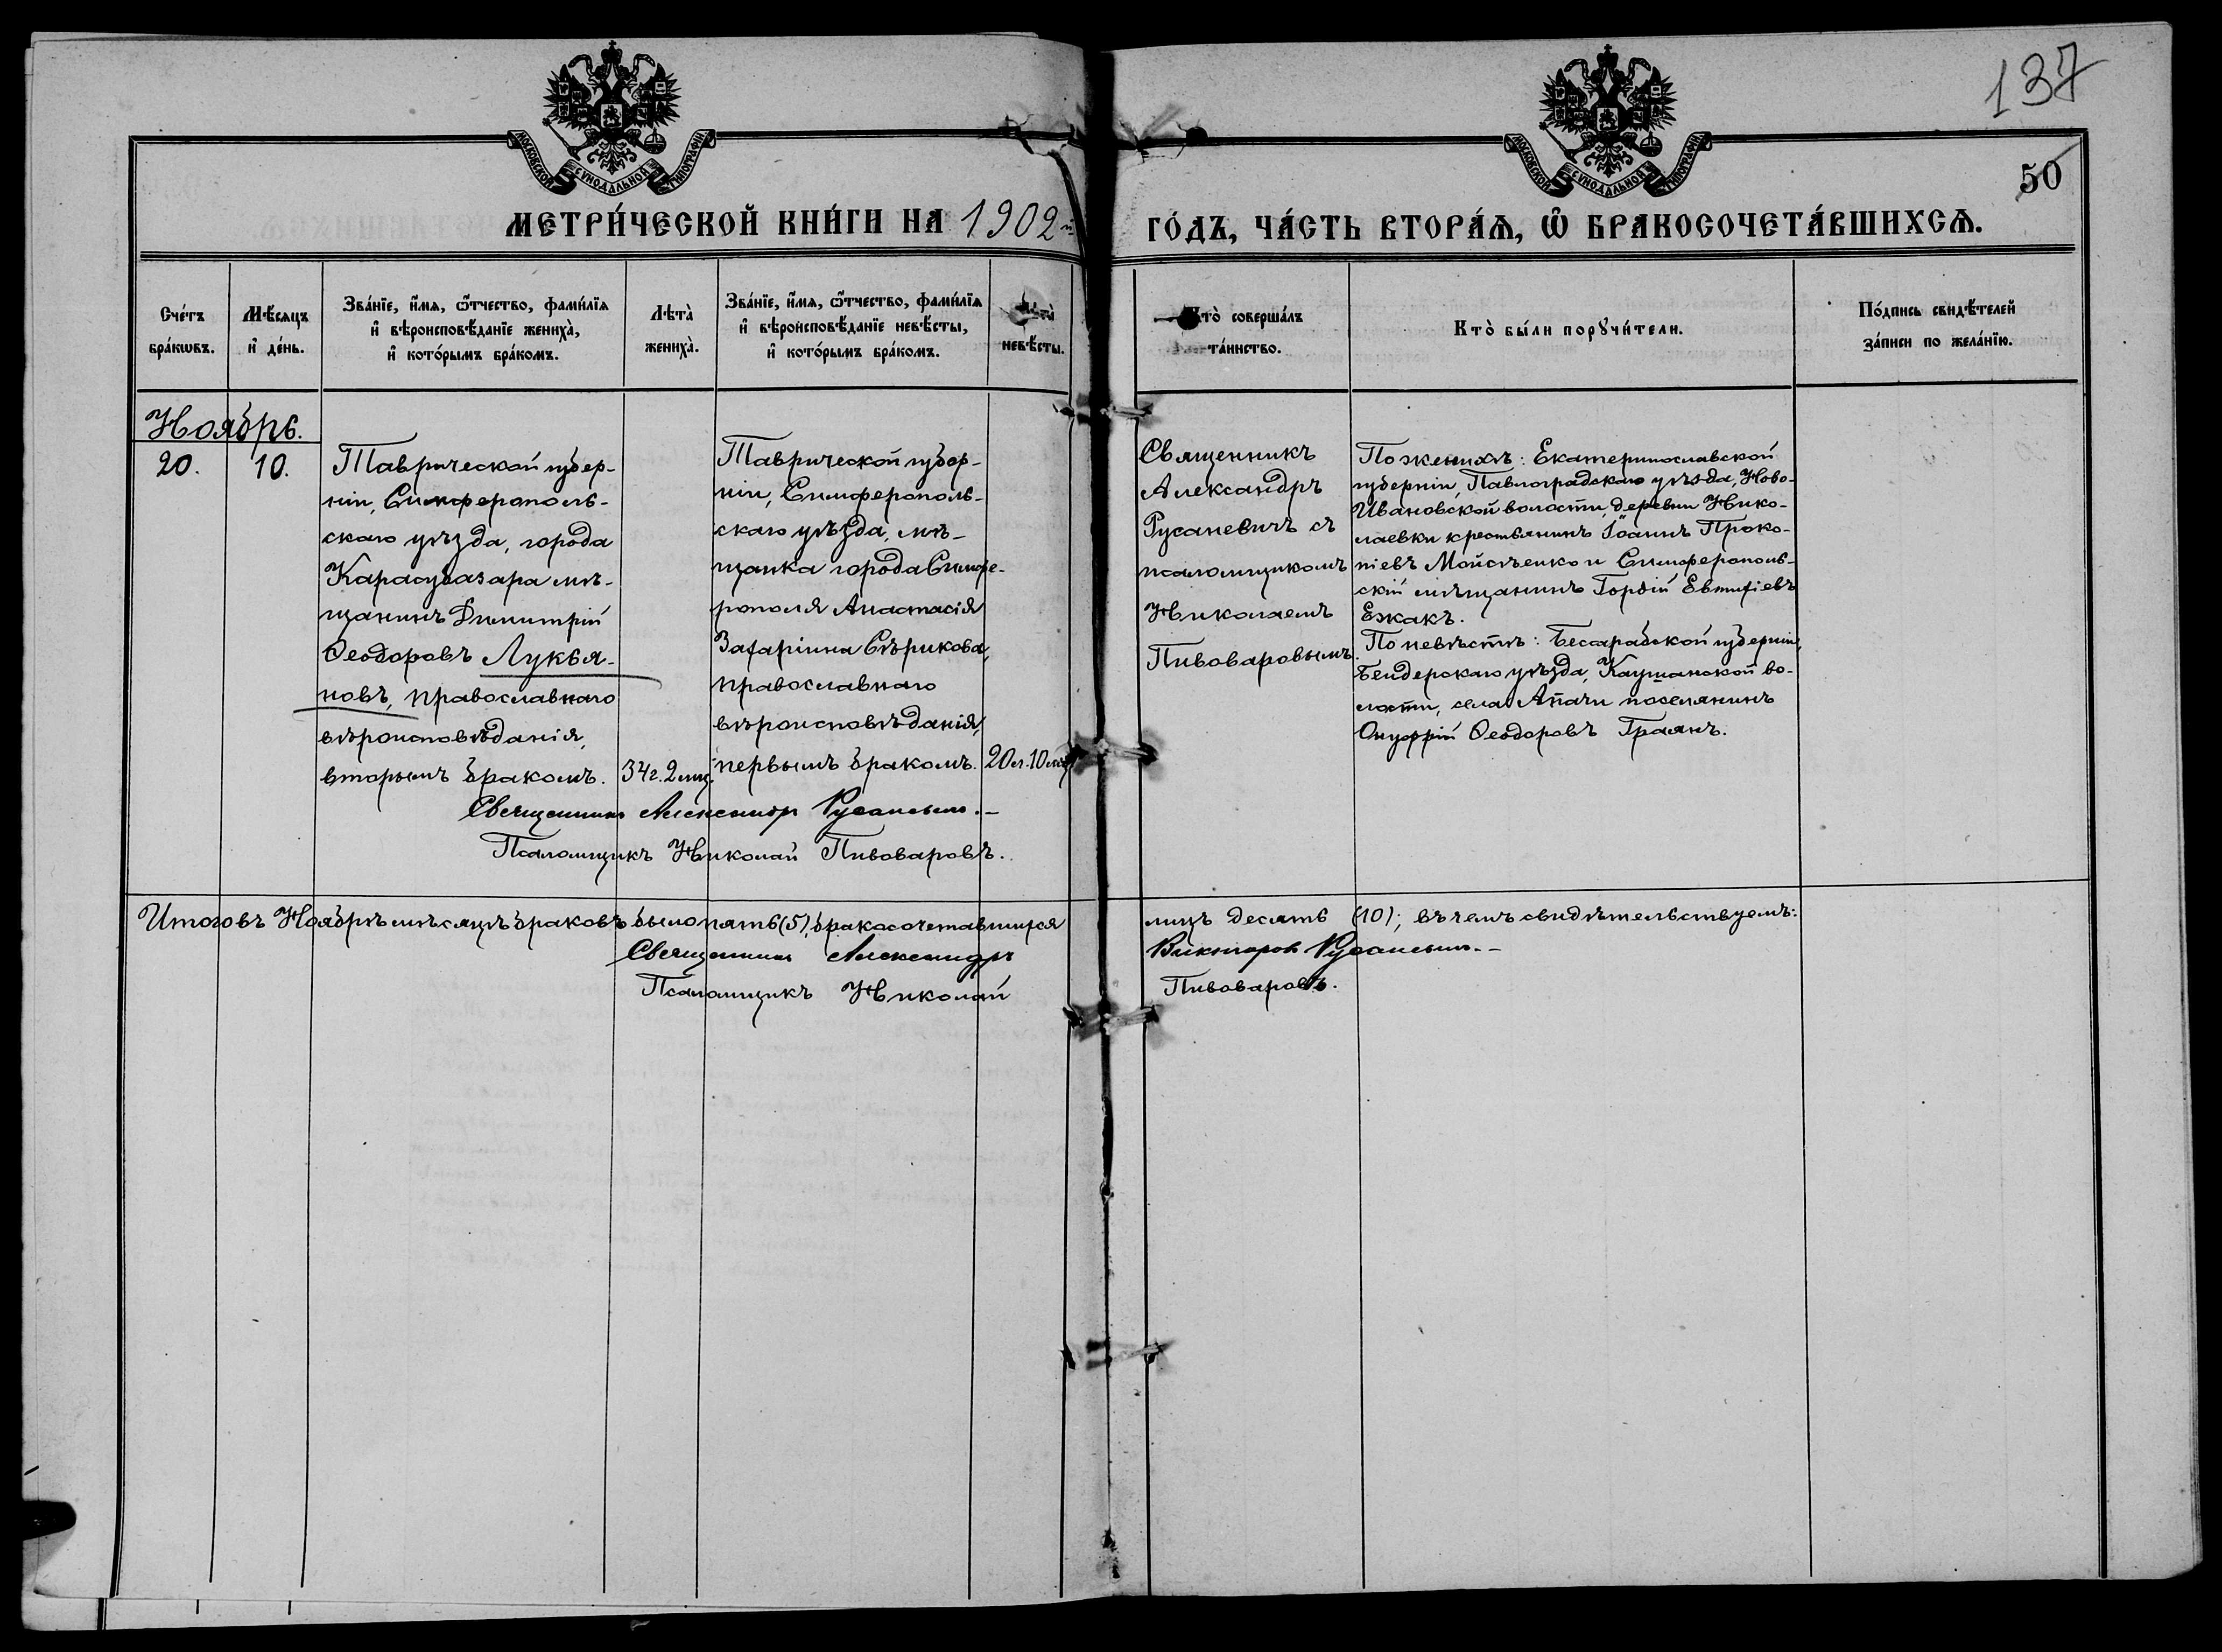 137
50
МОСКОВСКОЙ СѴНОДАЛЬНОЙ ТИПОГРАФІИ
МОСКОВСКОЙ СѴНОДАЛЬНОЙ ТИПОГРАФІИ
МЕТРИ́ЧЕСКОЙ КНИ́ГИ НА 1902й ГО́ДЪ, ЧА́СТЬ ВТОРА́Ѧ, Ѽ БРАКОСОЧЕТА́ВШИХСѦ.
Сче́тъ
бра́кѡвъ.
Мѣ́сяцъ
и҆ де́нь.
Зва́нїе, и҆́мя, ѻ҆́тчество, фами́лїя
и҆ вѣроисповѣ́данїе жениха̀,
и҆ кото́рымъ бра́комъ.
Лѣта̀
жениха̀.
Зва́нїе, и҆́мя, ѻ҆́тчество, фами́лїя
и҆ вѣроисповѣ́данїе невѣ́сты,
и҆ кото́рымъ бра́комъ.
Лѣта̀
невѣ́сты.
Кто̀ соверша́лъ
та́инство.
Кто̀ бы́ли порꙋчи́тели.
По́дпись свидѣ́телей
за́писи по жела́нїю.
Ноябрь.
20.
10.
Таврической губер-
ніи, Симферополь-
скаго уѣзда, города
Карасубазара мѣ-
щанинъ Димитрій
Ѳеодоровъ Лукья-
новъ, православнаго
вѣроисповѣданія,
вторымъ бракомъ.
34г. 2 мц.
Таврической губер-
ніи, Симферополь-
скаго уѣзда, мѣ-
щанка города Симфе-
рополя Анастасія
Захаріина Сѣрикова,
православнаго
вѣроисповѣданія,
первымъ бракомъ.
20 л. 10 мц.
Священникъ
Александръ
Русаневичъ съ
псаломщикомъ
Николаемъ
Пивоваровымъ.
По женихѣ: Екатеринославской
губерніи, Павлоградскаго уѣзда, Ново-
Ивановской волости, деревни Нико-
лаевки крестьянинъ Іоаннъ Проко-
піевъ Мойсѣенко и Симферополь-
скій мѣщанинъ Гордій Евтихіевъ
Ежакъ.
По невѣстѣ: Бессарабской губерніи,
Бендерскаго уѣзда, Каушанской во-
лости, села Опачи поселянинъ
Онуфрій Ѳеодоровъ Граянъ.
Священникъ Александръ Русаневичъ.–
Псаломщикъ Николай Пивоваровъ.
Итого въ Ноябрѣ мѣсяцѣ браковъ было пять (5), бракосочетавшихся лицъ десять (10); въ чемъ свидѣтельствуемъ:
Священникъ Александръ Викторовъ Русаневичъ.–
Псаломщикъ Николай Пивоваровъ.